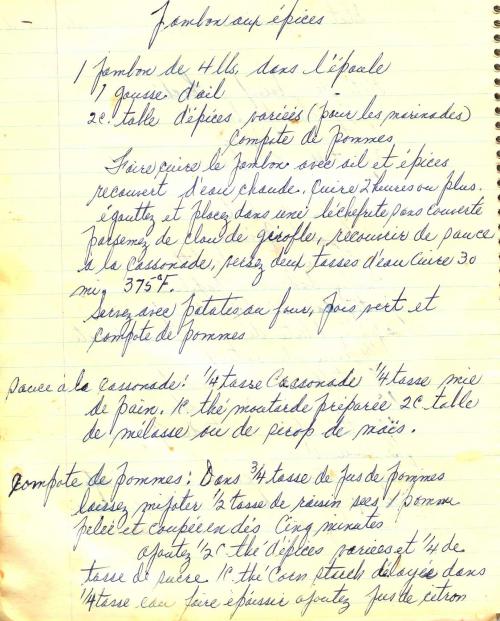 Jambon aux épices
1 jambon de 4 lbs. dans l'épaule
1 gousse d'ail
2c. table d'épices variées (pour les marinades)
compote de pommes
Faire cuire le jambon avec ail et épices
recouvert d'eau chaude. Cuire 2 heures ou plus.
égouttez et placez dans une lèchefrite sans couverte
parsemez de clou de girofle, recouvrir de sauce
à la cassonade, versez deux tasses d'eau cuire 30
mi. 375°F.
Servez avec patates au four, pois vert et
compote de pommes
Sauce à la cassonade: 1/4 tasse Cassonade 1/4 tasse mie
de pain. 1c. thé moutarde préparée 2c. table
de mélasse ou de sirop de maïs.
Compote de pommes: Dans 3/4 tasse de jus de pommes
laissez mijoter 1/2 tasse de raisin secs 1 pomme
pelée et coupée en dés Cinq minutes
ajoutez 1/2 c thé d'épices variées et 1/4 de
tasse de sucre 1c thé Corn Starch délayée dans
1/4 tasse eau faire épaissir ajoutez jus de citron